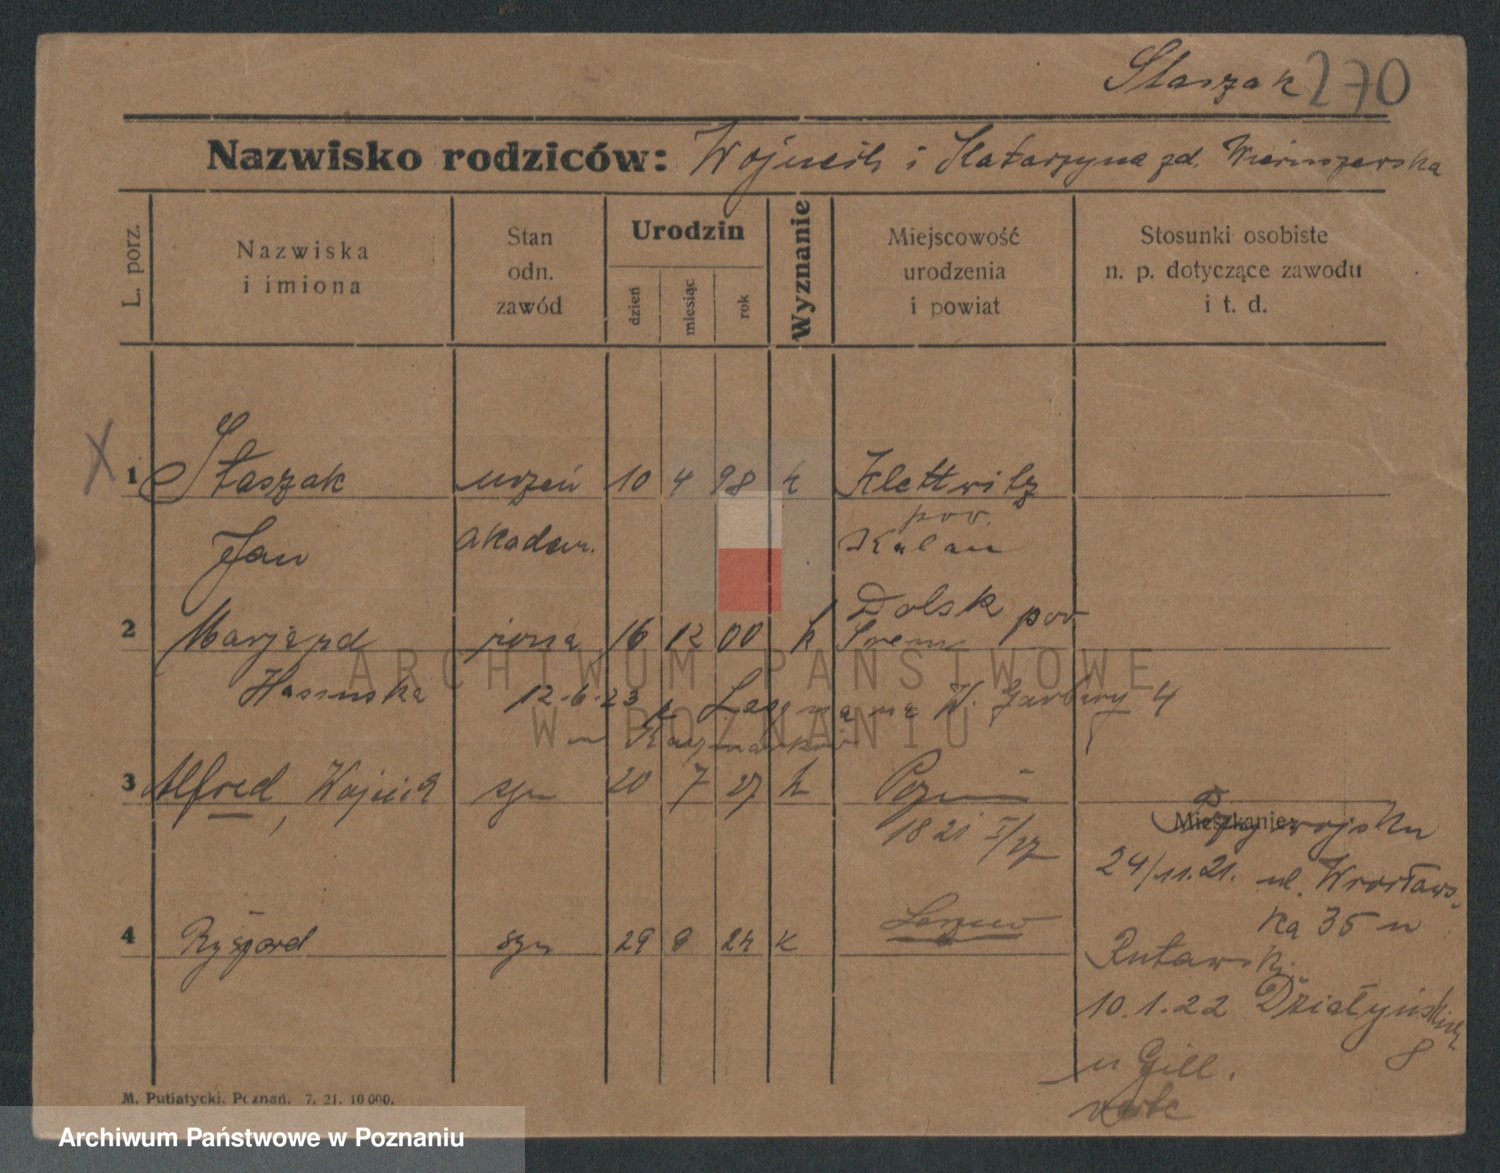 Staszak 270
Nazwisko rodziców: Wojciech i Katarzyna zd.
L. porz.
Nazwiska i imiona
Stan odn. zawód
Urodzin
dzień miesiąc rok
Wyznanie
Miejscowość urodzenia i powiat
Stosunki osobiste n. p. dotyczące zawodu i t. d.
X
1 Staszak uczeń 10 4 98 k Klettwitz
pov.
Jan akadem. Kalau
Dolsk pow
2 Marja zd żona 16 12 00 k Srem
Hasinska 12.6.23 W. Garbary 4
3 Alfred, Wojciech syn 20 7 27 k
1821 I/27
Mieszkanie
Przy wojsku
24/11.21. ul. Wrocławs-
ka 35 u
4 Ryszard syn 29 24 k
Rutawski
10.1.22 Działyńskich
8
u Gill.
M. Putiatycki. Poznań. 7. 21. 10 000.
ARCHIWUM PAŃSTWOWE
W POZNANIU
Archiwum Państwowe w Poznaniu